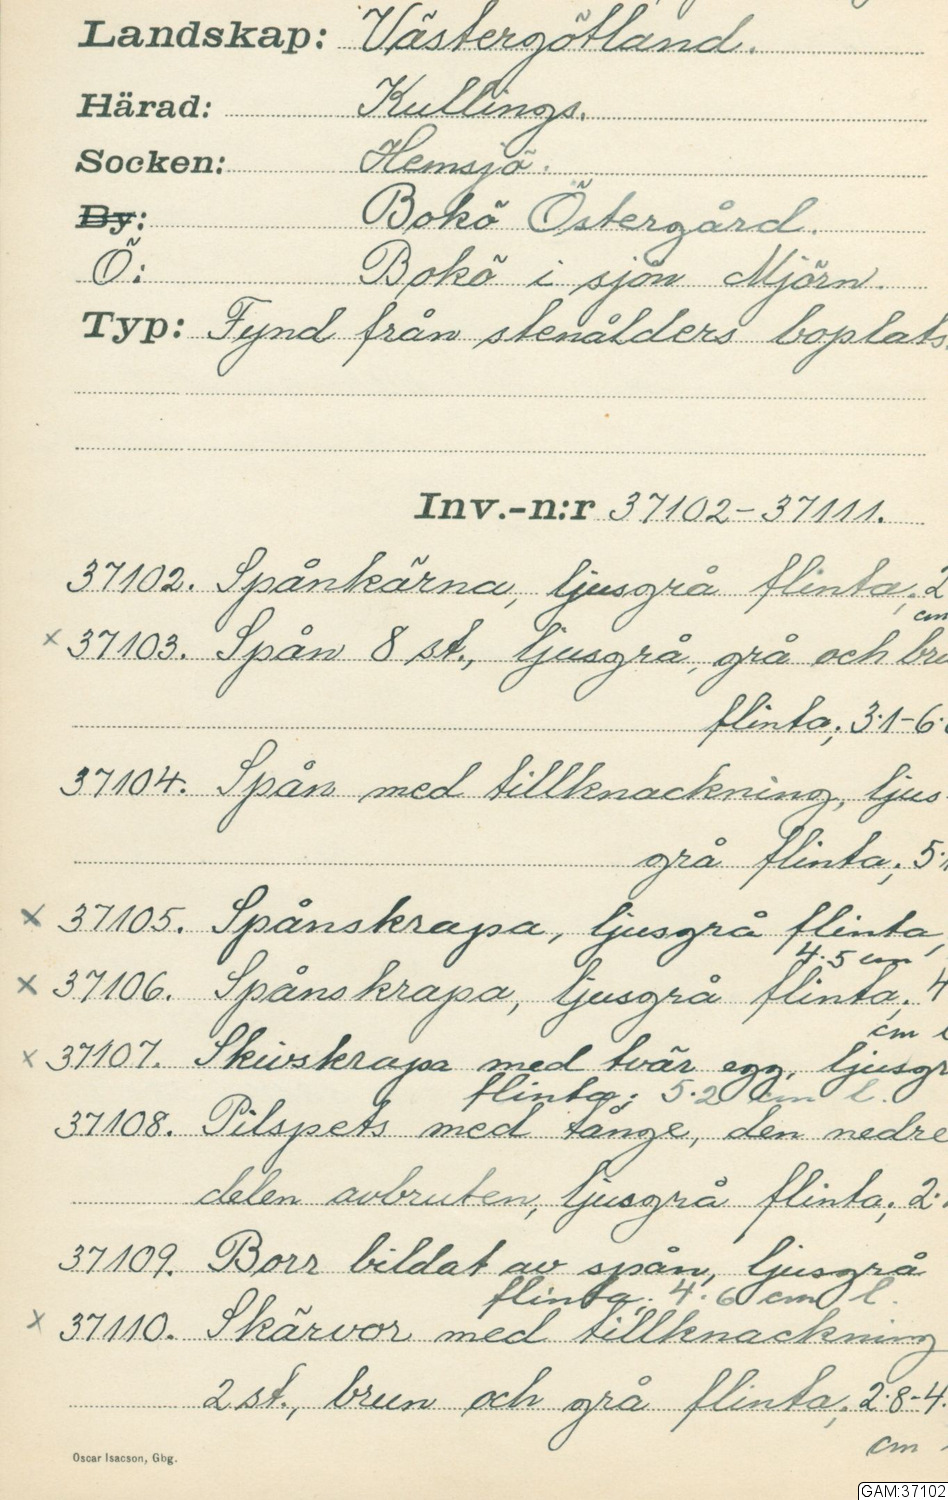 Landskap: Västergötland.
Härad: Kullings.
Socken: Hemsjö.
By: Bokö Östergård.
Ö: Bokö i sjön Mjörn.
Typ: Fynd från stenålders boplats.
Inv.-n:r 37102-37111.
37102. Spånkärna, ljusgrå flinta; 2
cm
x 37103. Spån 8 st., ljusgrå, grå och bru
flinta; 3.1-6.
37104. Spån med tillknackning, ljus-
grå flinta; 5.
x 37105. Spånskrapa, ljusgrå flinta,
4.5 cm
x 37106. Spånskrapa, ljusgrå flinta; 4
cm l
x 37107. Skivskrapa med tvär egg, ljusgr
flinta; 5.2 cm l.
37108. Pilspets med tånge, den nedre
delen avbruten, ljusgrå flinta; 2.
37109. Borr bildat av spån, ljusgrå
flinta; 4.6 cm l.
x 37110. Skärvor med tillknackning
2 st., brun och grå flinta; 2.8-4.
cm
Oscar Isacson, Gbg.
GAM:37102